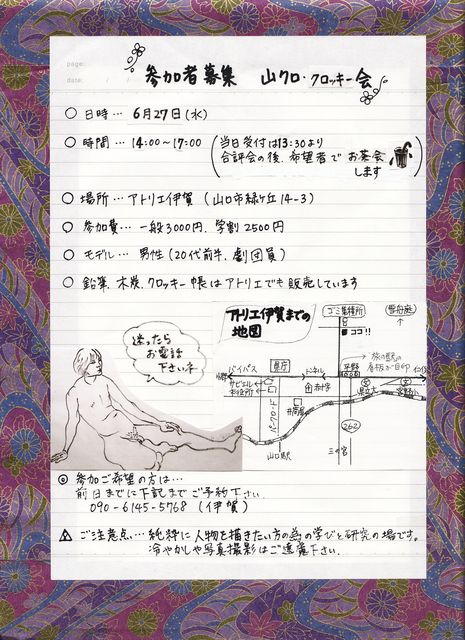 page:
date:
参加者募集 山クロ・クロッキー会
○ 日時… 6月27日(水)
○ 時間… 14:00〜17:00
(当日受付は13:30より
合評会の後、希望者でお茶会
します)
○ 場所… アトリエ伊賀 (山口市緑ヶ丘14-3)
○ 参加費… 一般3000円、学割2500円
○ モデル… 男性(20代前半、劇団員)
○ 鉛筆、木炭、クロッキー帳はアトリエでも販売しています
迷ったら
お電話
下さいネ
アトリエ伊賀までの
地図
ゴミ集積所
雪舟庭
ココ!!
バイパス
県庁
トンネル
平野
サビエル
市役所
赤十字
県立大
宮野
井筒屋
パークロード
262
山口駅
◎ 参加ご希望の方は…
前日までに下記までご予約下さい。
090-6145-5768 (伊賀)
ご注意点… 純粋に人物を描きたい方の為の学びと研究の場です。
冷やかしや写真撮影はご遠慮下さい。